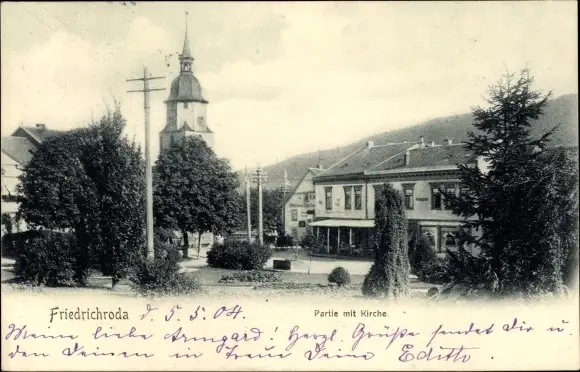 Friedrichroda d. 5. 5. 04.
Partie mit Kirche.
Meine liebe Armgard! Herzl. Grüße sendet Dir u
den Deinen in Treue Deine Editho